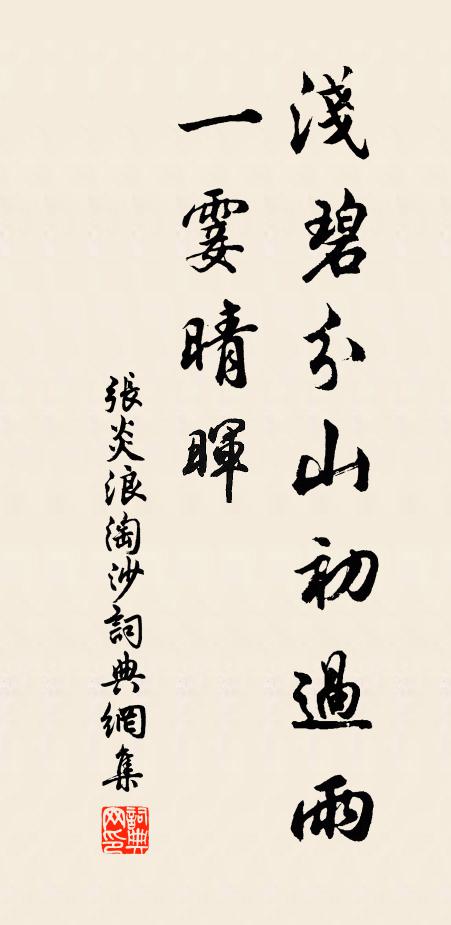 淺碧分山初過雨
一霎晴暉
張炎浪淘沙詞典網集
詞典网印